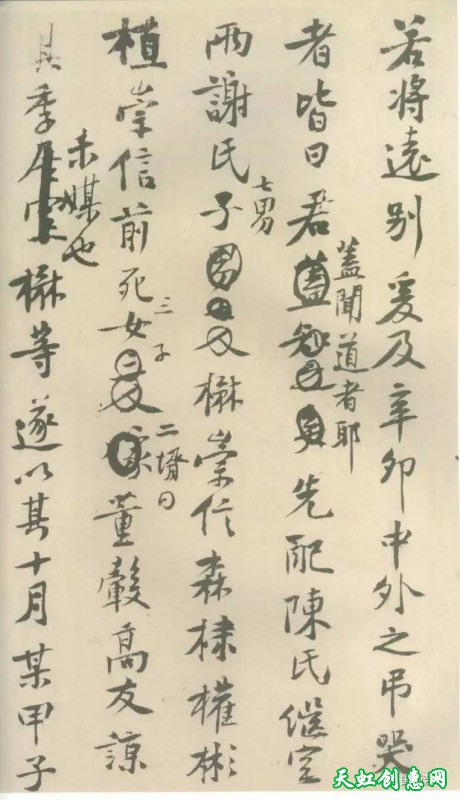 若將遠別爰及辛卯中外之吊哭
者皆曰君先配陳氏繼室
蓋聞道者耶
兩謝氏子楙崇信森棣權彬
七男
植崇信前死女董縠高友諒
三子
二壻曰
其季室楙等遂以其十月某甲子
未媒也
天虹创惠网